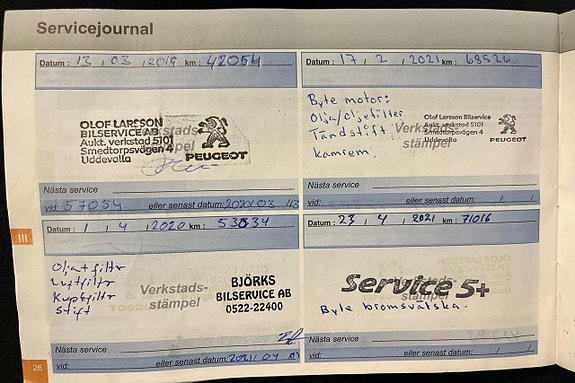 Servicejournal
Datum : 13 , 03 , 2019 km : 42054
OLOF LARSSON
BILSERVICE AB
Aukt. verkstad 5101
Smedtorpsvägen 4
Uddevalla
Verkstads-
stämpel
PEUGEOT
Nästa service
vid: 57054 eller senast datum: 2020/03/13
Datum : 17 , 2 , 2021 km : 68526
Byte motor:
Olja/oljefilter
Tändstift
kamrem.
Verkstads-
stämpel
Olof Larsson Bilservice
Aukt. verkstad 5101
Smedtorpsvägen 4
Uddevalla
PEUGEOT
Nästa service
vid: eller senast datum: / /
Datum : 1 , 4 , 2020 km :
Olja+filter
Luftfilter
Kupéfilter
Stift
Verkstads-
stämpel
BJÖRKS
BILSERVICE AB
0522-22400
Nästa service
vid: eller senast datum: 2021/04
Datum : 23 , 4 , 2021 km : 71016
Service 5+
stämpel
Byte bromsvätska.
Nästa service
vid: eller senast datum: / /
III
26